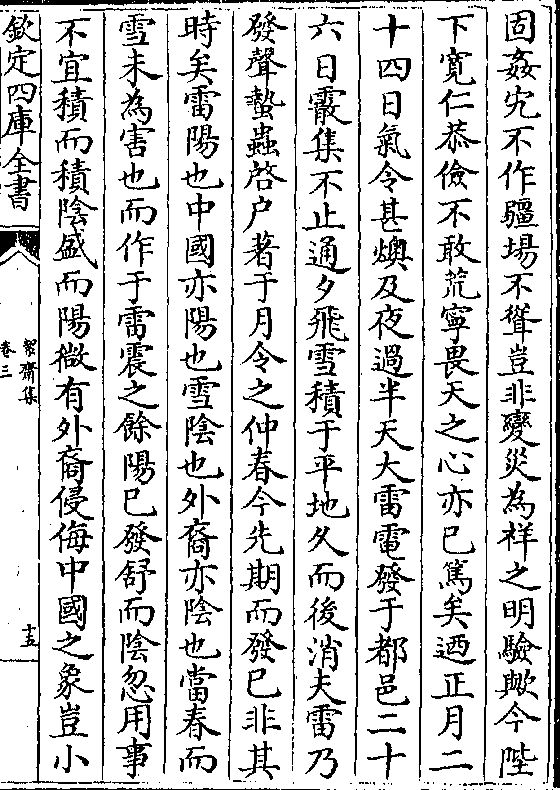 固姦宄不作疆場不聳豈非變災為祥之明驗歟今陛
下寬仁恭儉不敢荒寧畏天之心亦已篤矣迺正月二
十四日氣令甚燠及夜過半天大雷電發于都邑二十
六日霰集不止通夕飛雪積于平地久而後消夫雷乃
發聲蟄蟲啓户著于月令之仲春今先期而發已非其
時矣雷陽也中國亦陽也雪陰也外裔亦陰也當春而
雪未為害也而作于雷震之餘陽已發舒而陰忽用事
不宜積而積陰盛而陽微有外裔侵侮中國之象豈小
欽定四庫全書
絜齋集
卷三
十五